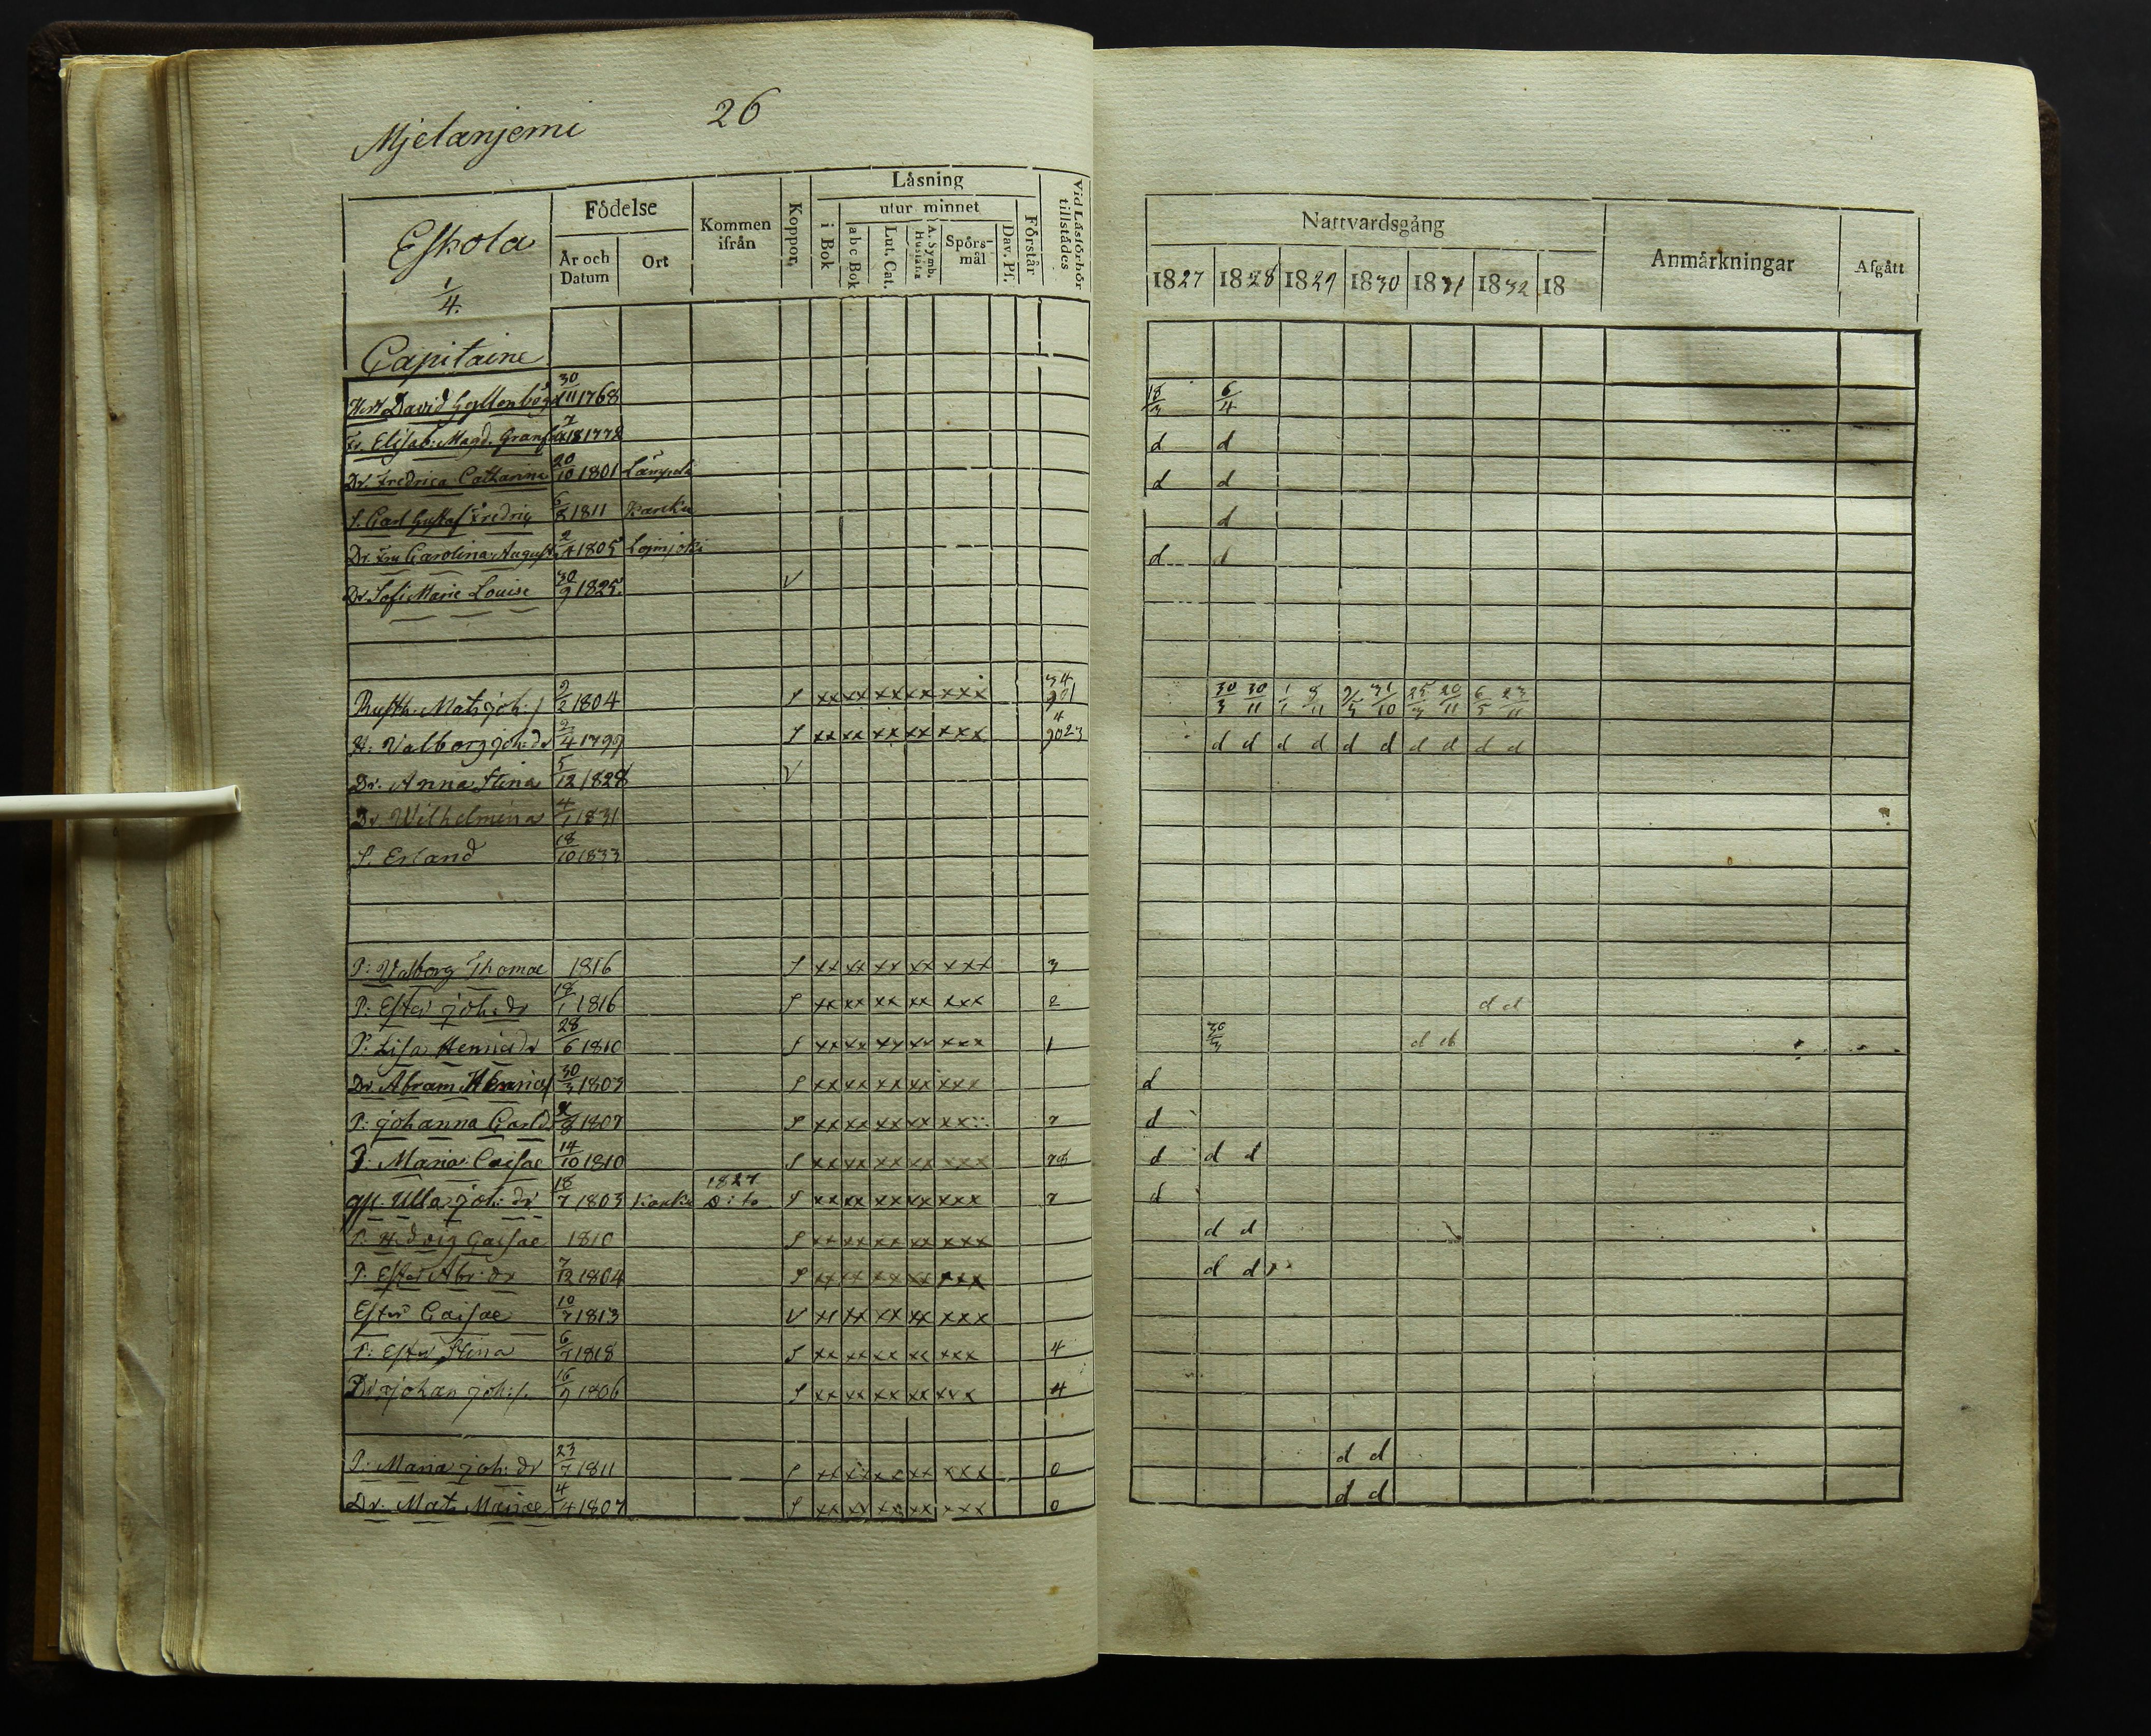 Mjelanjemi 26
Eskola
1/4.
Födelse
År och Datum
Ort
Kommen ifrån
Koppor
Läsning
i Bok
utur minnet
abc Bok
Lut. Cat.
A. Symb. Hustafla
Spörs-mål
Dav. Ps.
Förstår
Vid Läsförhör tillstädes
Nattvardsgång
1827 1828 1829 1830 1831 1832 18
Anmärkningar
Afgått
Capitaine
Herr David Gyllenbög 30/11 1768 18/3 6/4
Fr. Elisab: Magd. 1772 d d
Dr. Fredrica Catharina 20/10 1801 d d
S. Carl Gustaf Fredric 6/8 1811 Karku d
Dr. Carolina August 2/4 1805 Loimjoki d d
Dr. Sofi Marie Louise 30/9 1825. V
Rusth. Mats joh: s 2/2 1804 S xx xx xx xx xxx 30/3 30/11 1/1 8/11 31/10 25/3 20/11 6/5 23/11
H. Valborg joh: dr 2/4 1799 S xx xx xx xx xxx d d d d d d d d d d
Dr. Anna Stina 5/12 1828 V
Dr Wilhelmina 4/1 1831
S. Erland 18/10 1833
P: Valborg Thomae 1816 S xx xx xx xx xxx 3
P: Ester joh: dr 18/1 1816 S xx xx xx xx xxx 2 d d
P: Lisa Henricdr 28/6 1810 S xx xx xx xx xxx 1 30/3
Dr Abram Henrics 30/3 1803 S xx xx xx xx xxx d
P: johanna Carl d 1807 S xx xx xx xx xx 7 d
P: Maria Caisae 14/10 1810 S xx xx xx xx xxx d d d
gft. Ulla joh: dr 18/7 1803 Karku 1827 Dito S xx xx xx xx xxx 7 d
P: Hedvig Caisae 1810 S xx xx xx xx xxx d d
P: Ester Abr: dr 7/12 1804 S xx xx xx xx xxx d d
Ester Caisae 10/7 1813 V xx xx xx xx xxx
P: Ester Stina 6/7 1818 S xx xx xx xx xxx 4
Dr johan joh: s. 16/9 1806 S xx xx xx xx xxx 4
P: Maria joh: dr 23/7 1811 S xx xx xx xx xxx 0 d d
Dr. Mats Mariae 4/4 1807 S xx xx xx xx xxx 0 d d